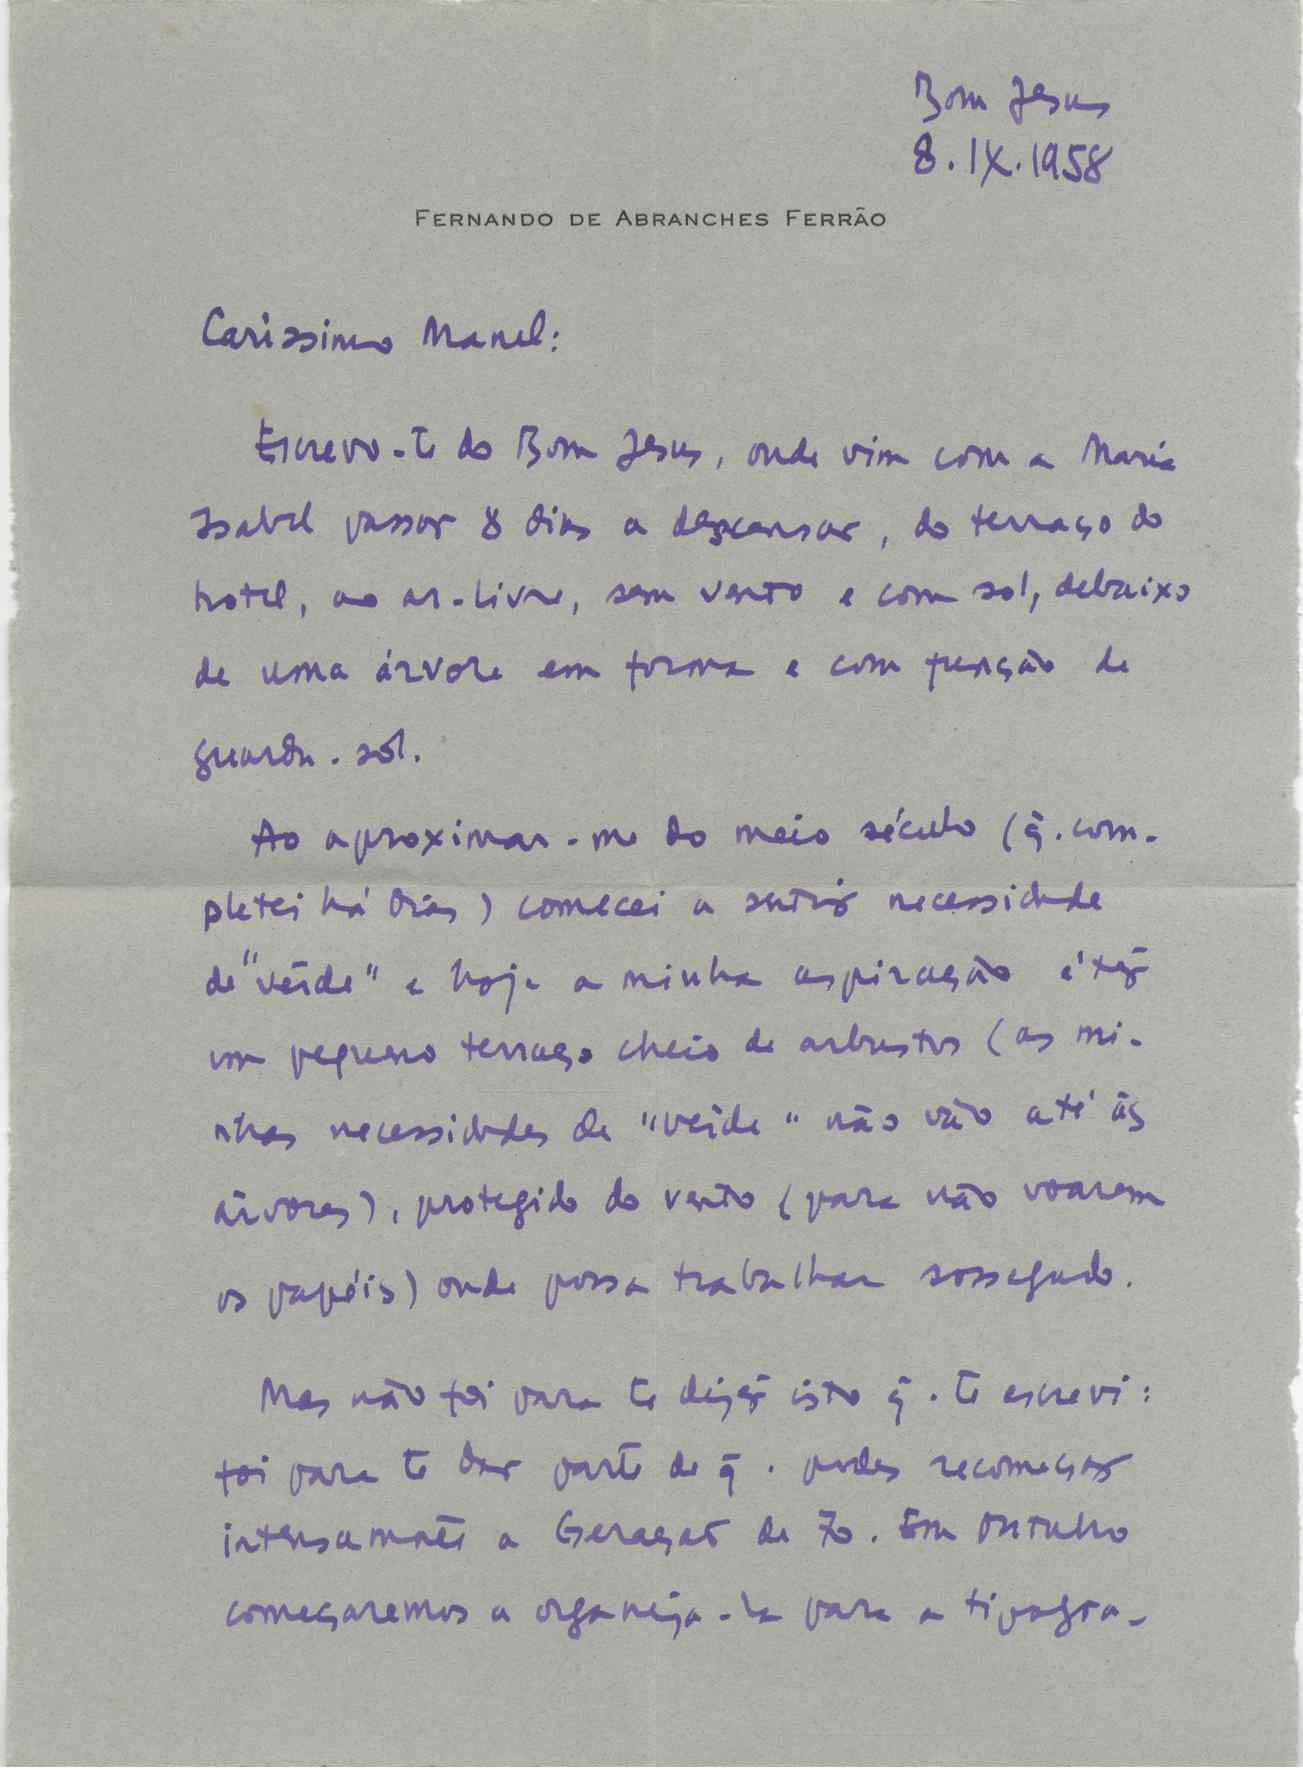 Bom Jesus
8.IX.1958
FERNANDO DE ABRANCHES FERRÃO
Caríssimo Manel:
Escrevo-te do Bom Jesus, onde vim com a Maria
Isabel passar 8 dias a descansar, do terraço do
hotel, ao ar-livre, sem vento e com sol, debaixo
de uma árvore em forma e com função de
guarda-sol.
Ao aproximar-me do meio século (q̃. com-
pletei há dias) comecei a sentir necessidade
de "vêrde" e hoje a minha aspiração é têr
um pequeno terraço cheio de arbustos (as mi-
nhas necessidades de "vêrde" não vão até às
árvores), protegido do vento (para não voarem
os papéis) onde possa trabalhar sossegado.
Mas não foi para te dizer isto q̃. te escrevi:
foi para te dar parte de q̃. podes recomeçar
intensamente a Geração de 70. Em Outubro
começaremos a organizá-la para a tipogra-